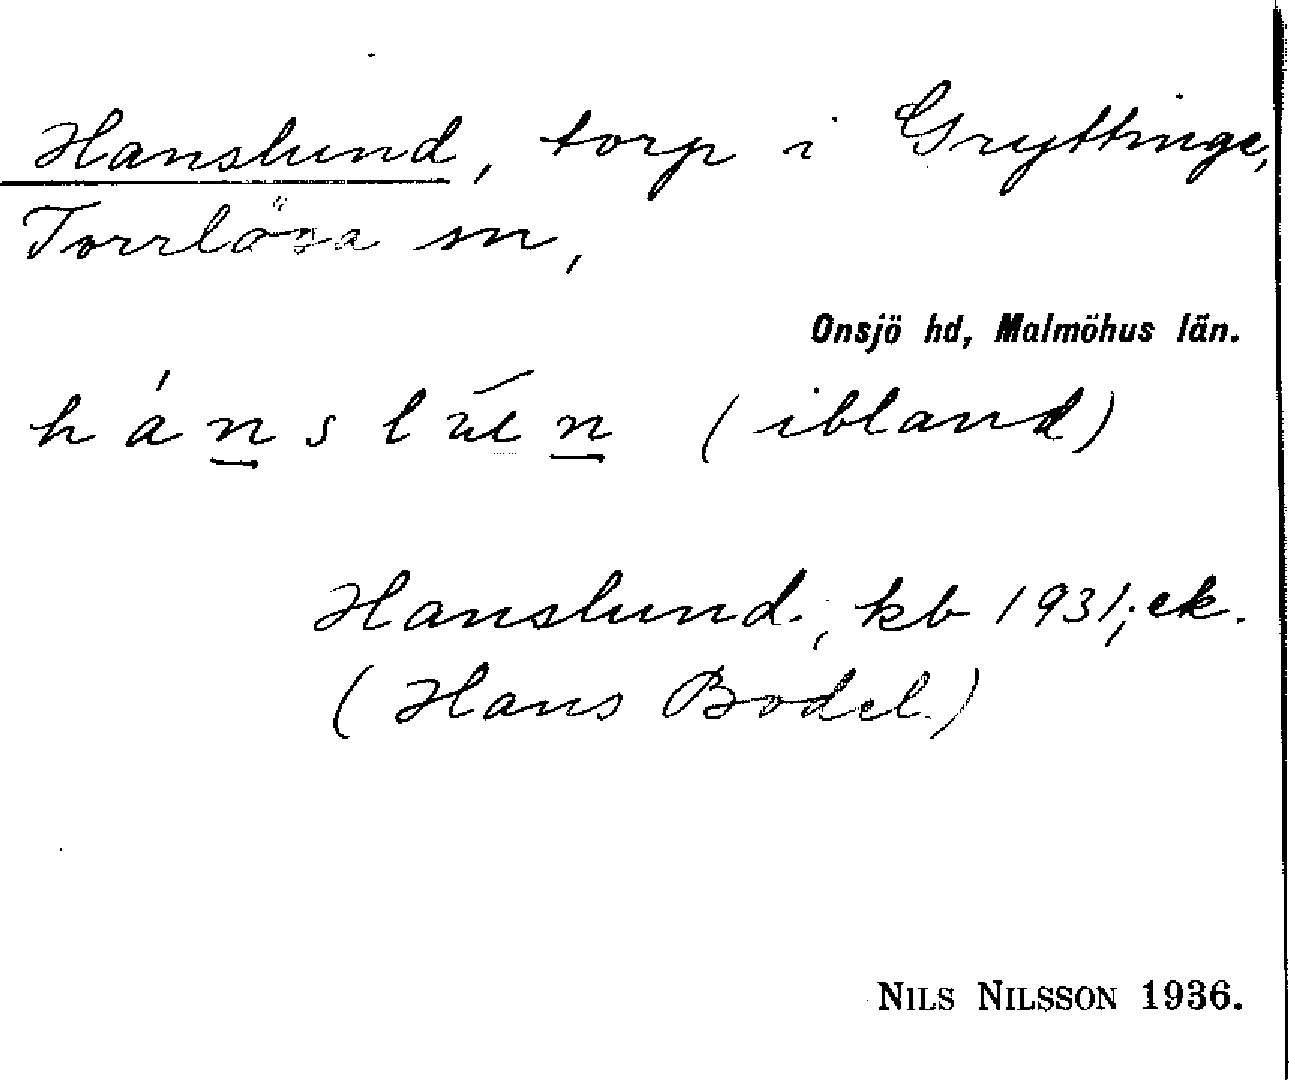 Hanslund, torp i Gryttinge,
Torrlösa sn,
Onsjö hd, Malmöhus län.
hánslūn (ibland)
Hanslund, kb 1931; ek.
(Hans Bodel.)
NILS NILSSON 1936.